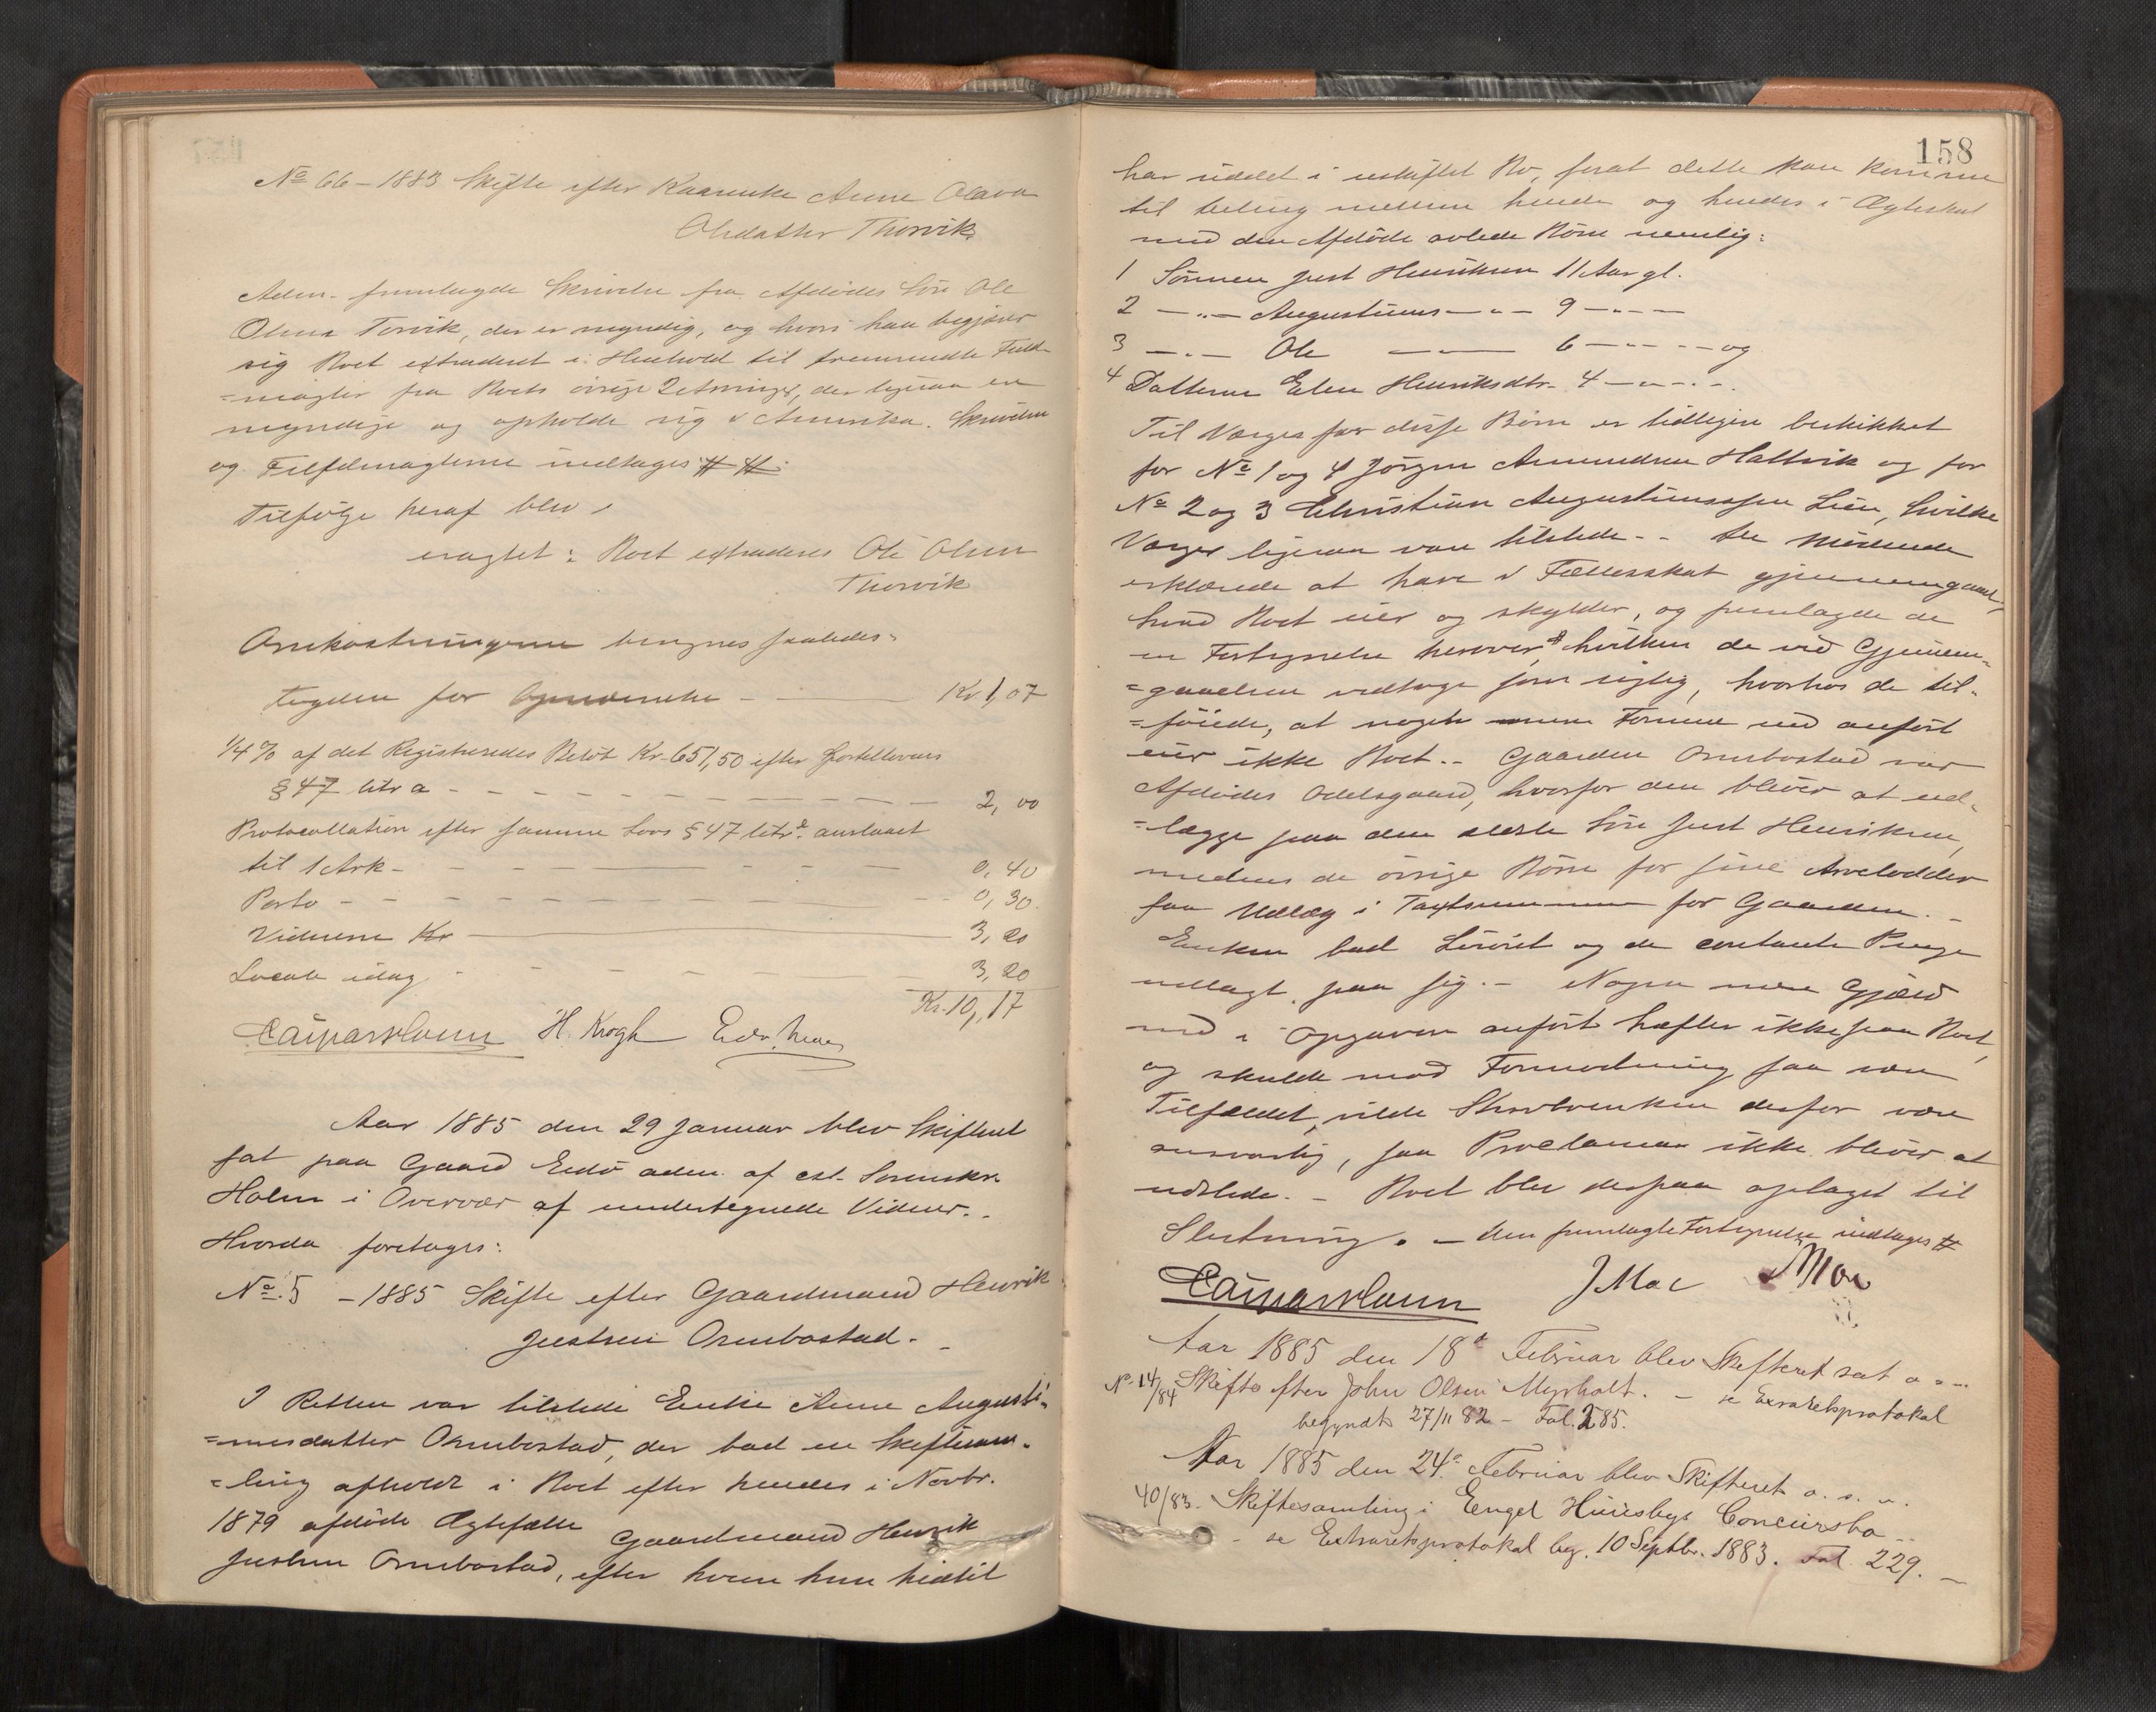 No 66 – 1883 Skifte efter Kaarenke Anne Olava
Olsdatter Thorvik.
Adm. fremlagde Skrivelse fra Afdødes Søn Ole
Olsen Torvik, der er myndig, og hvori han begjærer
sig Boet extraderet i Henhold til fremsendte Fuld-
=magter fra Boets øvrige Arvinger, der ligesaa er
myndige og opholde sig i Amerika. Skrivelsen
og Fuldmagterne indtages # #.
Tilfølge heraf blev
eragtet: Boet extraderes Ole Olsen
Thorvik
Omkostningerne beregnes saaledes:
Kr. 1,07
1/4 % af det Registreredes Beløb Kr. 651,50 efter Sportellovens
§ 47 litr a – 2,00
Protocollation efter samme Lovs § 47 litr. anslaaet
til 1 Ark – 0,40
Porto – 0,30.
Vidnerne Kr – 3,20
Locale idag – 3,20
Kr. 10,17
Casparsholm H. Krogh Edv.
Aar 1885 den 29 Januar blev Skifteret
sat paa Gaard Eidø adm. af cst. Sorenskr.
Holm i Overvær af undertegnede Vidner.
Hvorda foretoges:
No. 5 – 1885 Skifte efter Gaardmand Henrik
Justsen Ormbostad.
I Retten var tilstede Enke Anne Augusti-
=nusdatter Ormbostad, der bad en Skiftesam-
=ling afholdt i Boet efter hendes i Novbr.
1879 afdøde Ægtefælle Gaardmand Henrik
Justsen Ormbostad, efter hvem hun hidtil
158
har siddet i uskiftet Bo, forat dette kan komme
til Deling mellem hende og hendes i Ægteskab
med den Afdøde avlede Børn nemlig:
1 Sønnen Just Henriksen 11 Aar gl.
2 –„– Augustinus –„– 9 –„–
3 –„– Ole –„– 6 –„– og
4 Datteren Elen Henriksdtr. 4 –„–
Til Værger for disse Børn er tidligere beskikket
for No 1 og 4 Jørgen Amundsen Haltvik og for
No 2 og 3 Christian Augustinussen Lien, hvilke
Værger ligesaa vare tilstede. – De Mødende
erklærede at have i Fællesskab gjennemgaaet,
hvad Boet eier og skylder, og fremlagde de
en Fortegnelse herover #, hvilken de ved Gjennem-
=gaaelsen vedtoge som rigtig, hvorhos de til-
=føiede, at noget mere Formue end anført
eier ikke Boet. – Gaarden Ormbostad var
Afdødes Odelsgaard, hvorfor den bliver at ud-
=lægge paa den ældste Søn Just Henriksen,
medens de øvrige Børn for sine Arvelodder
faa Udlæg i Taxtsummen for Gaarden. –
Enken bad Løsøret og de contante Penge
udlagt paa sig. – Nogen mere Gjæld
end i Opgaven anført hæfter ikke paa Boet,
og skulde mod Formodning saa være
Tilfældet, vilde Stervboenken derfor være
ansvarlig, saa Proclama ikke bliver at
udstede. – Boet blev derpaa optaget til
Slutning. – Den fremlagte Fortegnelse indtages #
Casparsholm J Moe Moe
Aar 1885 den 18de Februar blev Skifteret sat o s v
No. 14/84 Skifte efter John Olsen Myrholt. – se Extraretsprotokol
begyndt 27/11 82 – Fol. 285.
Aar 1885 den 24de Februar blev Skifteret o. s. v.
40/83. Skiftesamling i Engel Huusbys Concursbo
– se Extraretsprotokol beg. 10 Septbr. 1883. Fol. 229. –